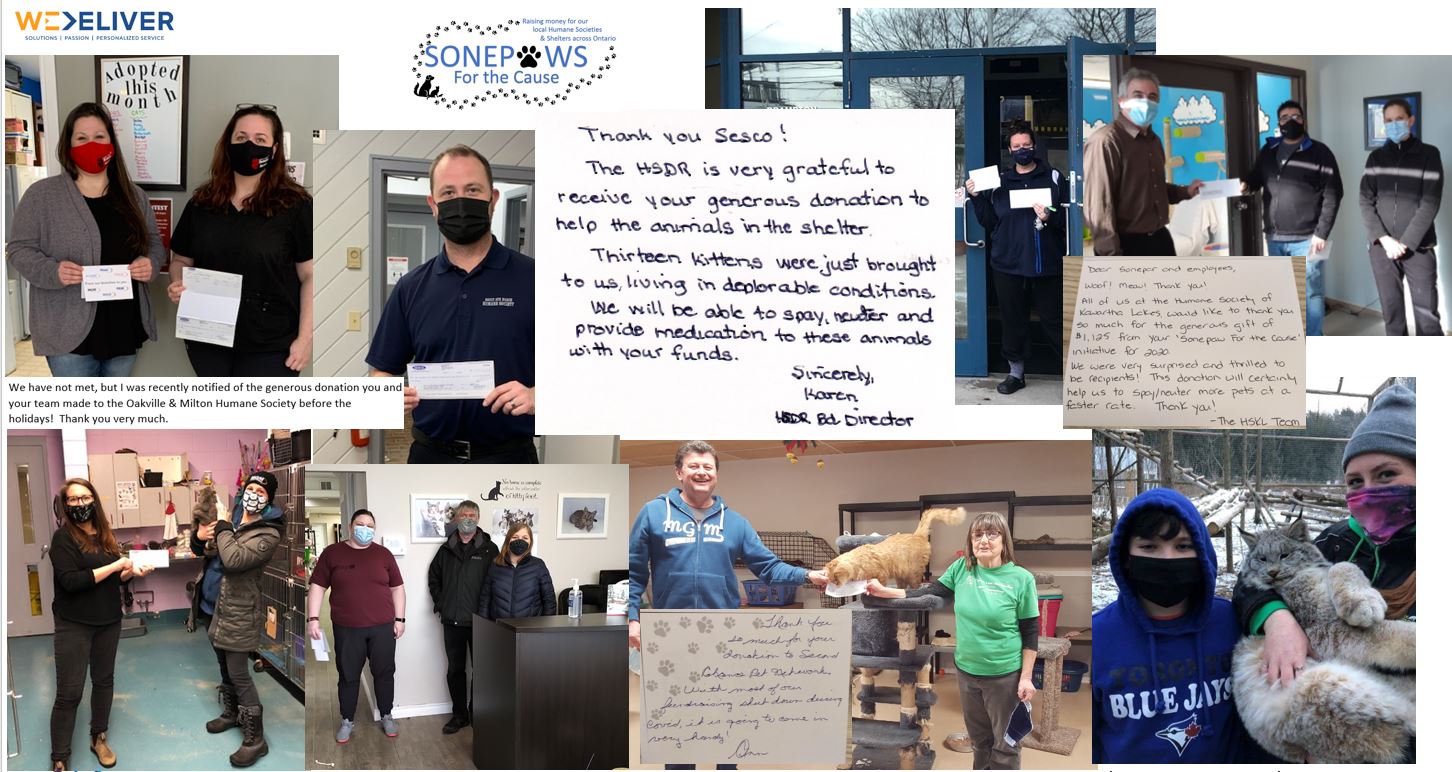 WE DELIVER
SOLUTIONS | PASSION | PERSONALIZED SERVICE
Raising money for our
local Humane Societies
& Shelters across Ontario
SONEPAWS
For the Cause
Adopted
this
month
Thank you Sesco!
The HSDR is very grateful to
receive your generous donation to
help the animals in the shelter.
Thirteen kittens were just brought
to us, living in deplorable conditions.
We will be able to spay, neuter and
provide medication to these animals
with your funds.
Sincerely,
Karen
HSDR Bd. Director
Dear Sonepar and employees,
Woof! Meow! Thank you!
All of us at the Humane Society of
Kawartha Lakes, would like to thank you
so much for the generous gift of
$1,125 from your 'Sonepaw For the Cause'
initiative for 2020
We were very surprised and thrilled to
be recipients! This donation will certainly
help us to spay/neuter more pets at a
faster rate. Thank you!
- The HSKL Team
We have not met, but I was recently notified of the generous donation you and
your team made to the Oakville & Milton Humane Society before the
holidays! Thank you very much.
HUMANE SOCIETY
No home is complete
without the pitter patter
of kitty feet.
mGm
Thank you
so much for your
donation to Second
Chance Pet Network.
With most of our
fundraising shut down during
Coved, it is going to come in
very handy!
Ann
TORONTO
BLUE JAYS